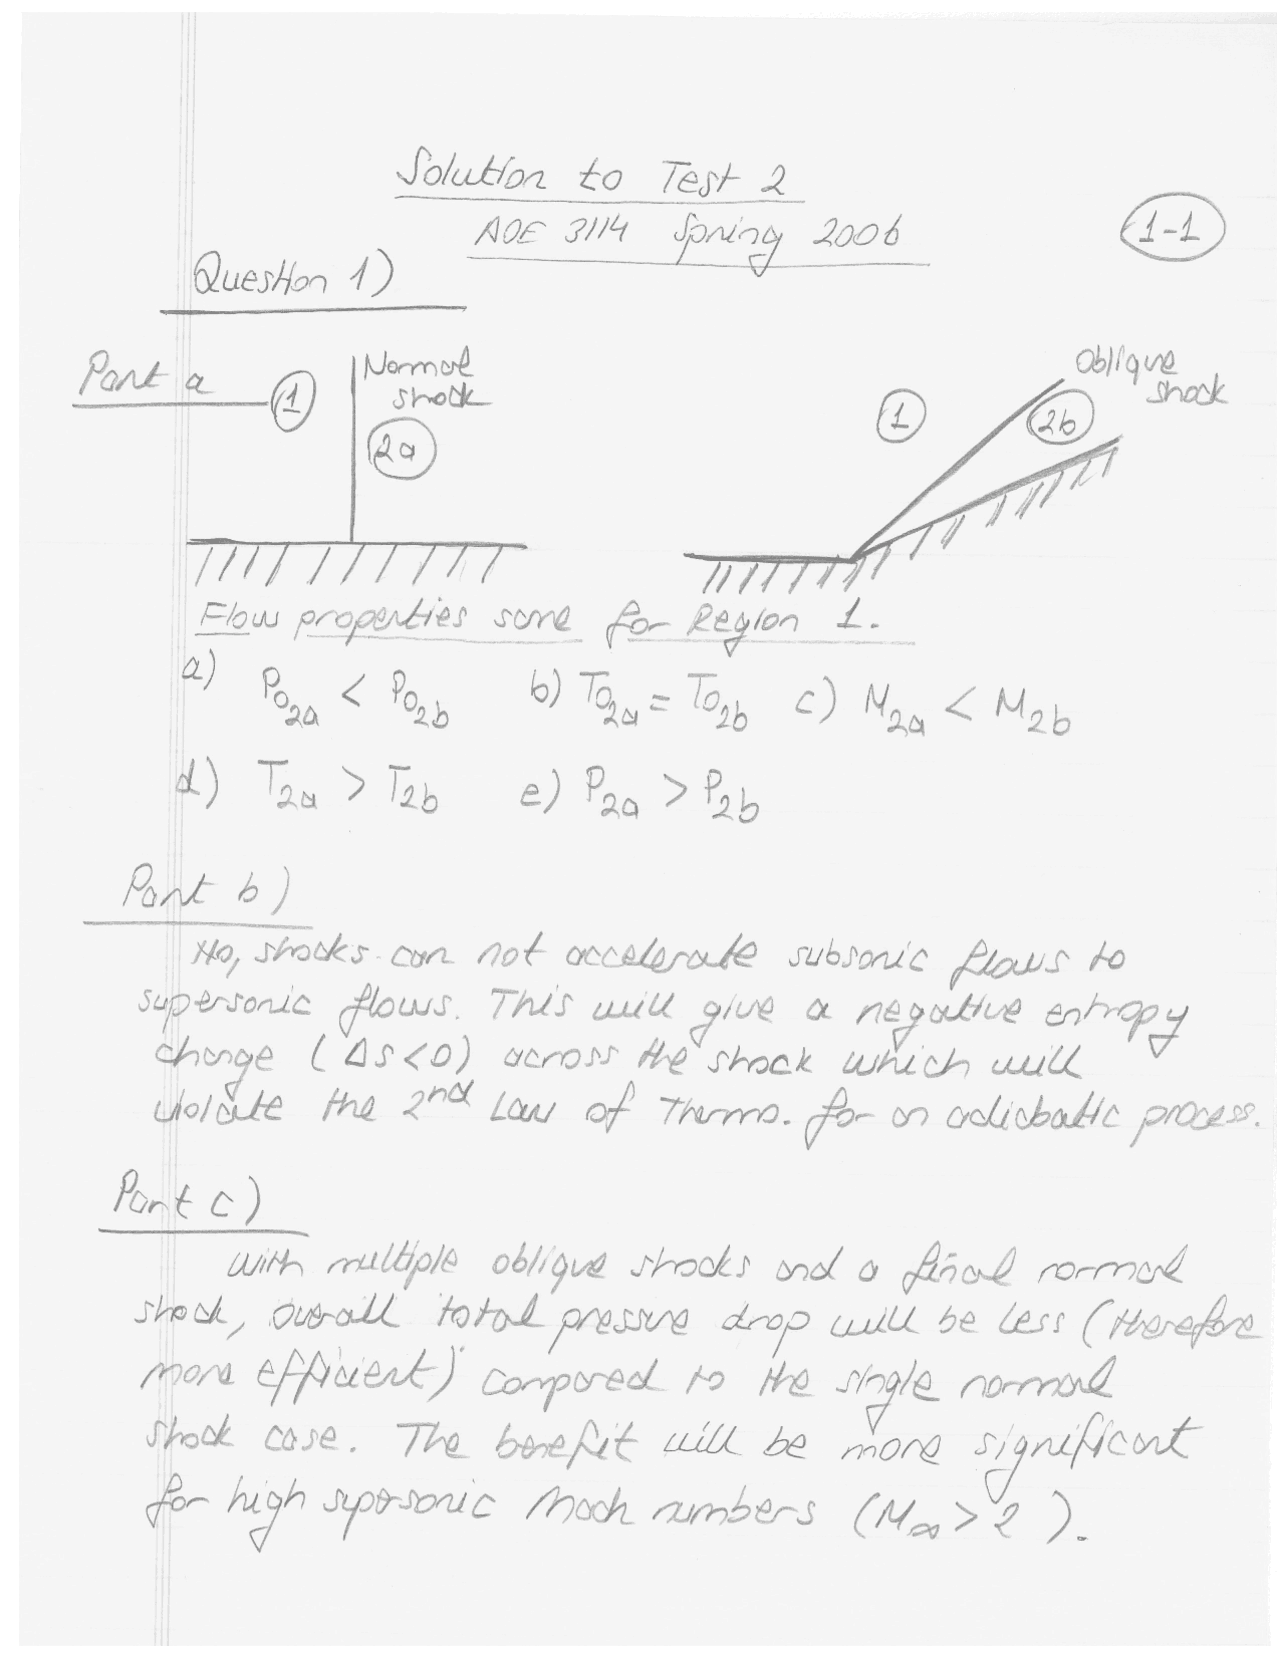 Solution to Test 2
AOE 3114 Spring 2006
1-1
Question 1)
Part a
1
Normal
shock
2a
1
Oblique
shock
2b
Flow properties same for Region 1.
a) P02a < P02b b) T02a = T02b c) M2a < M2b
d) T2a > T2b e) P2a > P2b
Part b)
No, shocks can not accelerate subsonic flows to
supersonic flows. This will give a negative entropy
change (Δs<0) across the shock which will
violate the 2nd Law of Thermo. for an adiabatic process.
Part c)
With multiple oblique shocks and a final normal
shock, overall total pressure drop will be less (therefore
more efficient) compared to the single normal
shock case. The benefit will be more significant
for high supersonic Mach numbers (M∞ > 2 ).